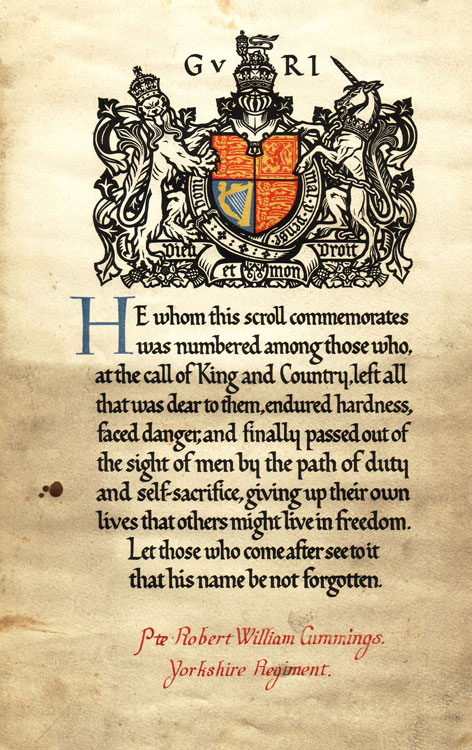 G V R I
Honi soit qui mal y pense
Dieu et mon Droit
HE whom this scroll commemorates
was numbered among those who,
at the call of King and Country, left all
that was dear to them, endured hardness,
faced danger, and finally passed out of
the sight of men by the path of duty
and self-sacrifice, giving up their own
lives that others might live in freedom.
Let those who come after see to it
that his name be not forgotten.
Pte Robert William Cummings.
Yorkshire Regiment.